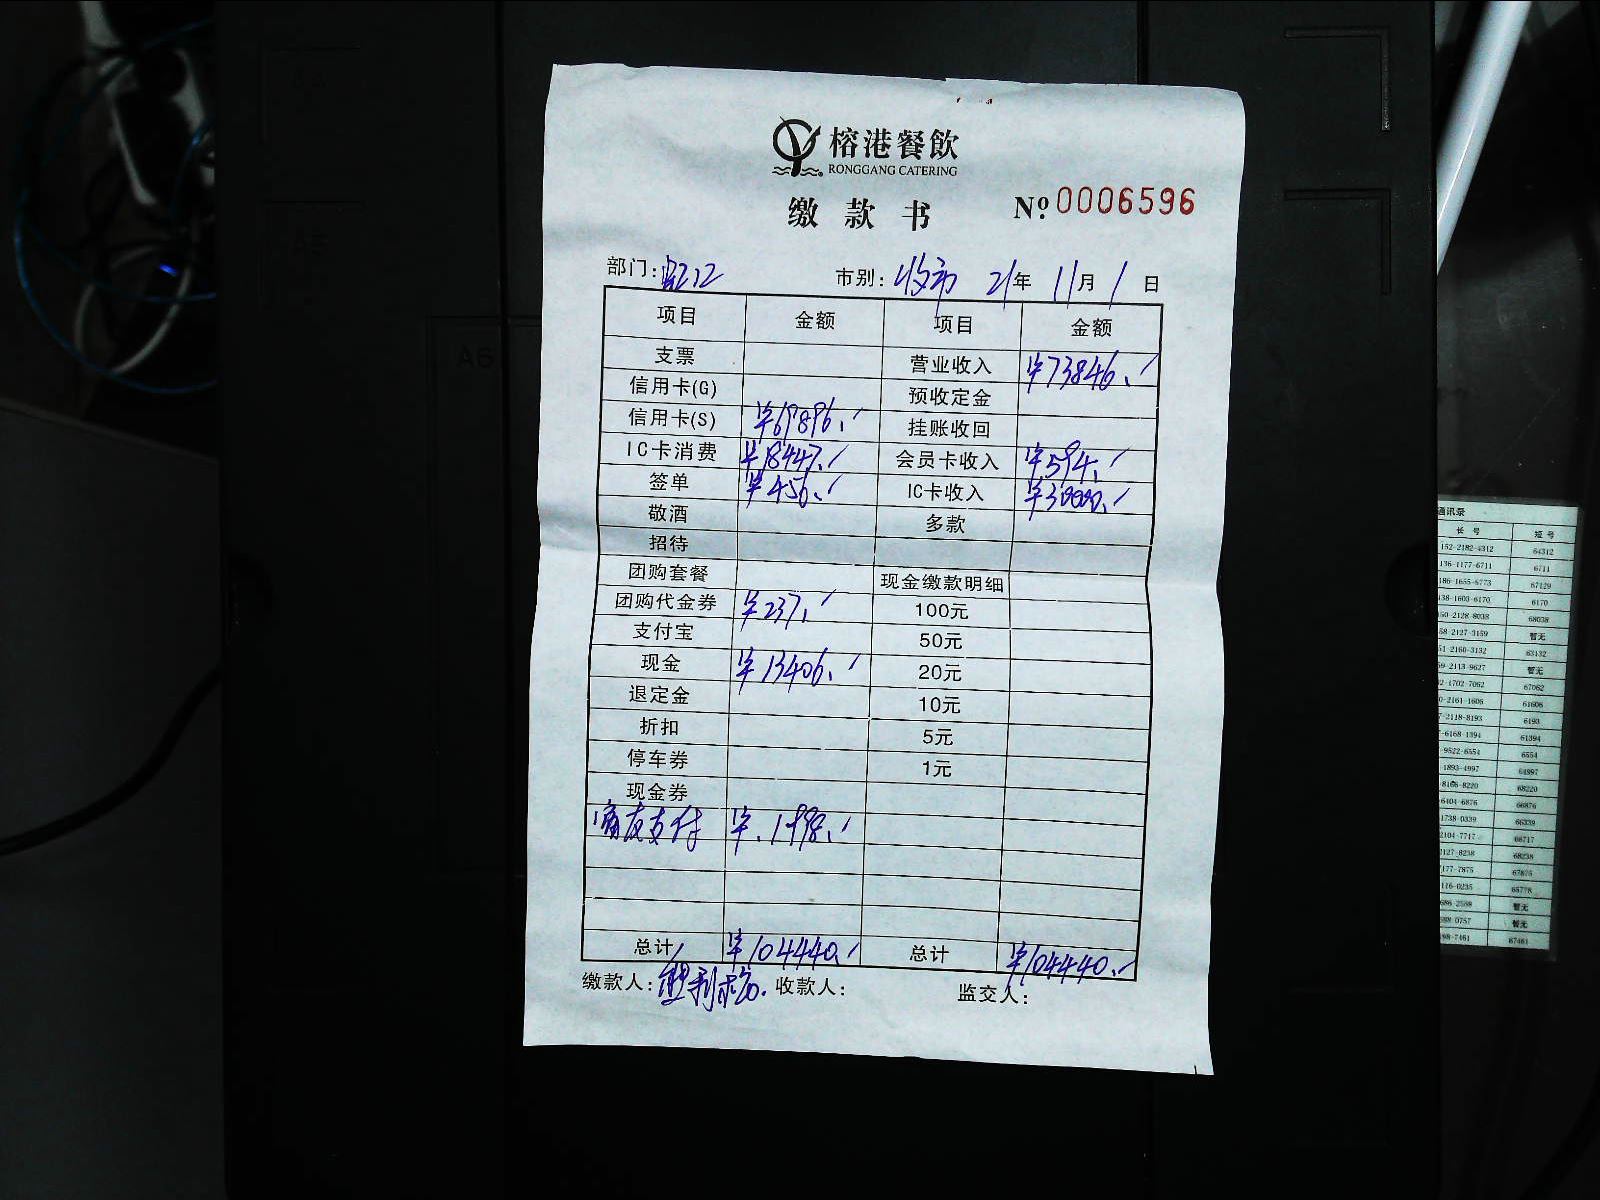 榕港餐飲
RONGGANG CATERING
缴款书
Nº 0006596
部门: 市别: 收市 21年 11月 1日
项目 金额 项目 金额
支票 营业收入 ¥73846.
信用卡(G) 预收定金
信用卡(S) ¥69896. 挂账收回
IC卡消费 ¥18447. 会员卡收入 ¥594.
签单 ¥456. IC卡收入 ¥30000.
敬酒 多款
招待
团购套餐 现金缴款明细
团购代金券 ¥237. 100元
支付宝 50元
现金 ¥13406. 20元
退定金 10元
折扣 5元
停车券 1元
现金券
支付 ¥1998.
总计 ¥104440. 总计 ¥104440.
缴款人: 收款人: 监交人:
A6
A5
通讯录
长号 短号
152-2182-4312 64312
136-1177-6711 6711
186-1655-6773 67129
138-1603-6170 6170
150-2128-8038 68038
58-2127-3159 暂无
51-2160-3132 63132
59-2113-9627 暂无
2-1702-7062 67062
0-2161-1606 61606
7-2118-8193 6193
6168-1394 61394
9522-6554 6554
1893-4997 64997
8168-8220 68220
6404-6876 66876
1738-0339 66339
2104-7717 66717
2127-8238 68238
177-7875 67875
116-0235
686-2598 暂无
0757 暂无
98-7461 67461